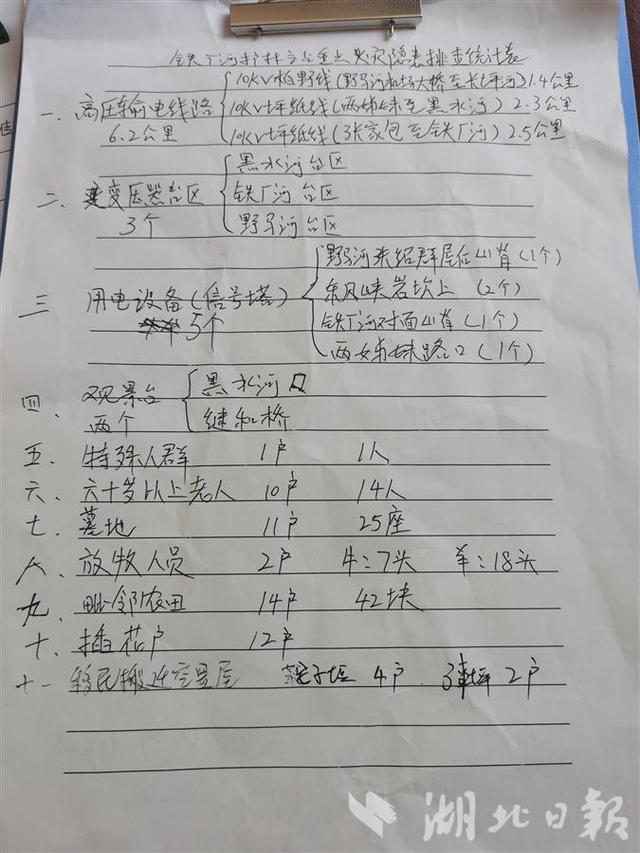 铁厂河护林主点重点火灾隐患排查统计表
10KV板野线(野马河板场大桥至长丰河)1.4公里
一、高压输电线路 10KV坪纸线(两姊妹至黑水河)2.3公里
6.2公里 10KV坪纸线(张家包至铁厂河)2.5公里
黑水河台区
二、变压器台区 铁厂河台区
3个 野马河台区
野马河朱绍群屋后山脊(1个)
三 用电设备(信号塔) 东风峡岩坎上(2个)
5个 铁厂河对面山脊(1个)
两姊妹路口(1个)
四、观景台 黑水河口
两个 继和桥
五、特殊人群 1户 1人
六、六十岁以上老人 10户 14人
七、墓地 11户 25座
八、放牧人员 2户 牛:7头 羊:18头
九、毗邻农田 14户 42块
十、插花户 12户
十一 移民搬迁空置屋 子垭 4户 坪 2户
湖北日報